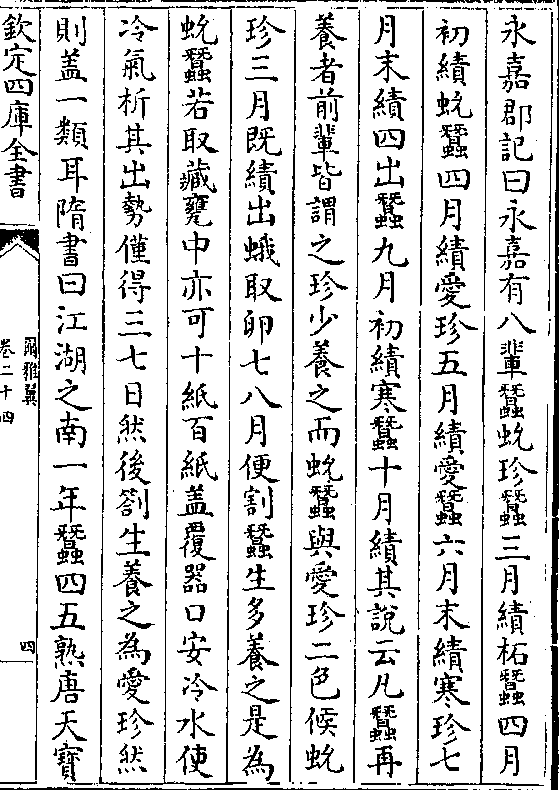 永嘉郡記曰永嘉有八輩蠶蚖珍蠶三月績柘蠶四月
初績蚖蠶四月績愛珍五月績愛蠶六月末績寒珍七
月末績四出蠶九月初績寒蠶十月績其說云凡蠶再
養者前輩皆謂之珍少養之而蚖蠶與愛珍二色候蚖
珍三月既績出蛾取卵七八月便割蠶生多養之是為
蚖蠶若取藏甕中亦可十紙百紙盖覆器口安冷水使
冷氣析其出勢僅得三七日然後劄生養之為愛珍然
則盖一類耳隋書曰江湖之南一年蠶四五熟唐天寶
欽定四庫全書
爾雅翼
卷二十四
四